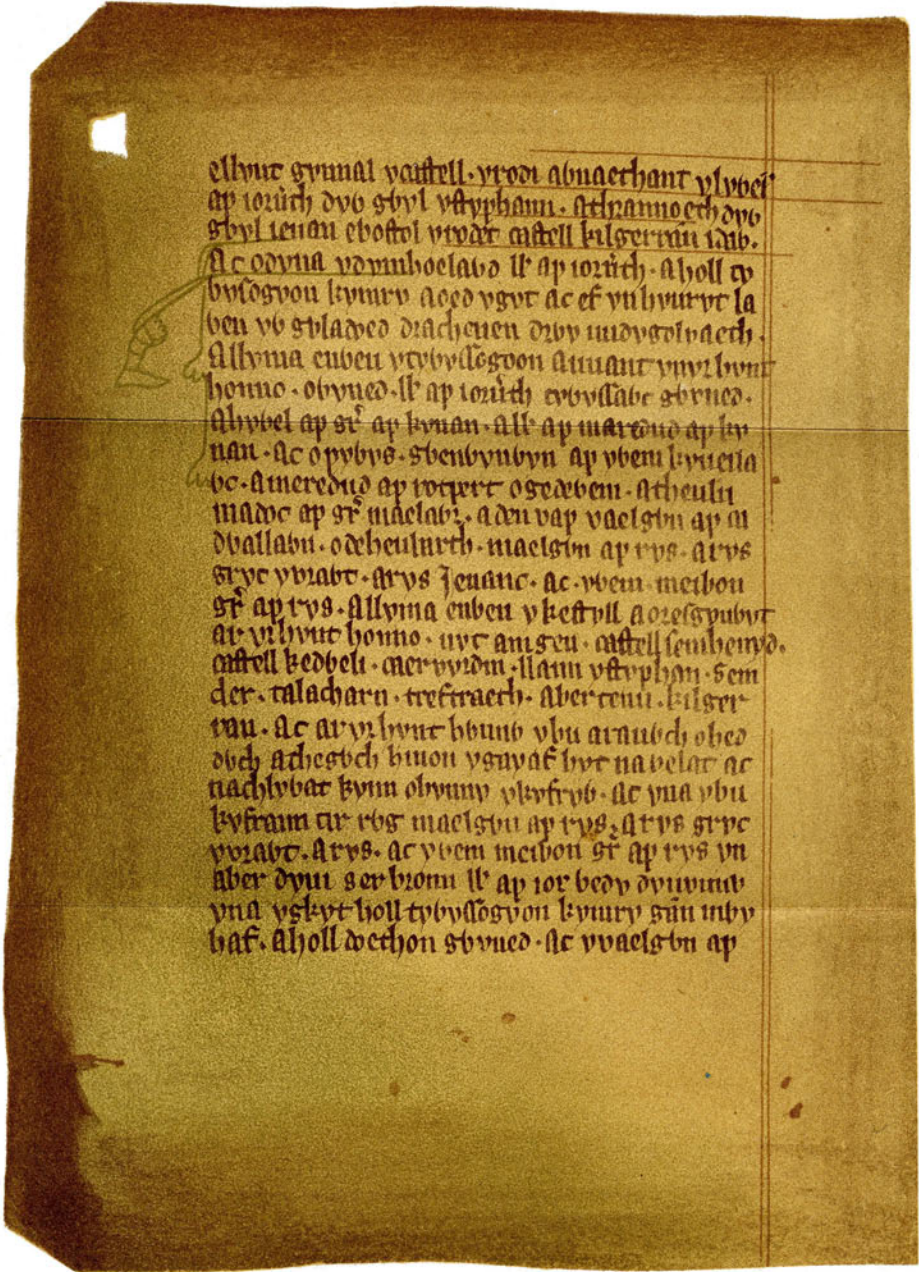 ellynt gynnal y castell. y rodi a ỽnaethant y lyỽel'
ap iorũth dyỽ gỽyl ystyphann. athrannoeth dyỽ
gỽyl ieuan ebostol y rodet castell kilgerran idaỽ.
Ac odyna ydymhoelaỽd ll' ap iorũth. Aholl ty
ỽysogyon kymry aoed ygyt ac ef yn hyuryt la
ỽen yỽ gỽladoed dracheuen drỽy uudygolyaeth.
Allyma enỽeu ytyỽyssogyon auuant ynyr hynt
honno. oỽyned. ll' ap iorũth tyỽyssaỽc gỽyned.
Ahyỽel ap gr' ap kynan. All' ap maredud ap ky
nan. Ac opoỽys. gỽenỽynỽyn ap yỽein kyueilia
ỽc. Ameredud ap rotpert ogedeỽein. Atheulu
madoc ap gr' maelaỽr. adeu vap vaelgỽn ap ca
dỽallaỽn. odeheubarth. maelgỽn ap rys. arys
gryc yvraỽt. Arys Jeuanc. ac. yỽein. meibon
gr' ap rys. Allyma enỽeu ykestyll aoresgynỽyt
ar yr hynt honno. nyt amgen. castell seinhenyd.
castell kedỽeli. caeruyrdin. llann ystyphan. Sein
cler. talacharn. treftraeth. Aberteiui. kilger
ran. Ac aryr hynt hỽnnỽ ybu araỽch ohed
ỽch athegỽch hinon ygayaf hyt naỽelat ac
nachlyỽat kynn ohynny ykyfryỽ. Ac yna ybu
kyfrann tir rỽg maelgỽn ap rys. arys gryc
yvraỽt. Arys. ac yỽein meibon gr' ap rys yn
aber dyui ger bronn ll' ap ior ỽedy dyuynnv
yna ygkyt holl tyỽyssogyon kymry gan mỽy
haf. Aholl doethon gỽyned. Ac yvaelgỽn ap